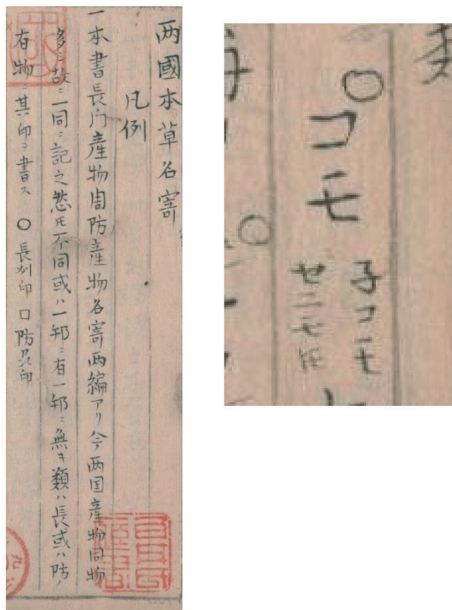 両國本草名寄
凡例
一本書長門産物周防産物名寄両編アリ今両国産物同物
多シ故ニ一同ニ記之然𪜈不同或ハ一邦ニ有一邦ニ無キ類ハ長或ハ防ノ
有物ニ其印ヲ書ス ○長州印 口防州印
○
コモ
子コモ
ゼニモ𪜈